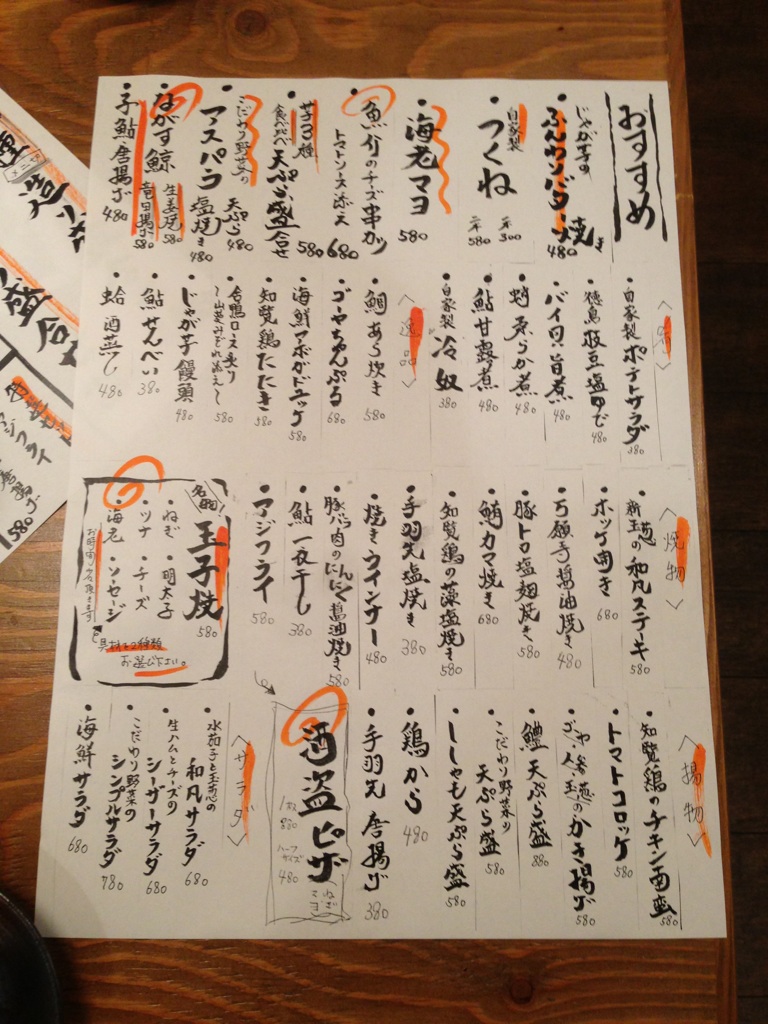 おすすめ
じゃが芋の
ふんわりバター焼き
480
自家製
つくね
一本 300
二本 580
海老マヨ
580
魚介のチーズ串カツ
トマトソース添え
680
芋3種
食べ比べ天ぷら盛合せ
580
こだわり野菜の
天ぷら
480
アスパラ塩焼き
480
ながす鯨
生姜焼 580
竜田揚げ 580
子鮎唐揚げ
480
自家製ポテトサラダ
380
徳島枝豆塩ゆで
480
バイ貝旨煮
480
蛸柔らか煮
480
鮎甘露煮
480
自家製冷奴
380
〈逸品〉
鯛あら炊き
580
ゴーヤちゃんぷる
680
海鮮アボガドユッケ
580
知覧鶏たたき
580
合鴨ロース炙り
〜山芋みぞれ添え〜
580
じゃが芋饅頭
480
鮎せんべい
380
蛤酒蒸し
480
〈焼物〉
新玉葱の和風ステーキ
580
ホッケ開き
680
万願寺醤油焼き
480
豚トロ塩麹焼き
580
鰤カマ焼き
680
知覧鶏の藻塩焼き
580
手羽先塩焼き
380
焼きウインナー
480
豚バラ肉のにんにく醤油焼き
580
鮎一夜干し
380
アジフライ
580
名物!
玉子焼
580
・ねぎ ・明太子
・ツナ ・チーズ
・海老 ・ソーセージ
お時間少々頂きます
具材を2種類
お選び下さい。
〈揚物〉
知覧鶏のチキン南蛮
580
トマトコロッケ
580
ゴーヤ・人参・玉葱のかき揚げ
580
鱧天ぷら盛
880
こだわり野菜の
天ぷら盛
580
ししゃも天ぷら盛
580
鶏から
480
手羽先唐揚げ
380
酒盗ピザ
1枚
880
ハーフ
サイズ
480
ねぎ
マヨ
〈サラダ〉
水茄子と玉葱の
和風サラダ
680
生ハムとチーズの
シーザーサラダ
680
こだわり野菜の
シンプルサラダ
780
海鮮サラダ
680
造り
盛合
アジフライ
唐揚げ
580